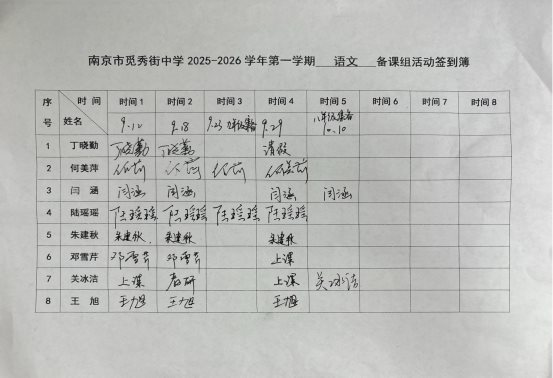 南京市觅秀街中学 2025-2026 学年第一学期 语文 备课组活动签到簿
序号 时间 姓名 时间 1 时间 2 时间 3 时间 4 时间 5 时间 6 时间 7 时间 8
9.12 9.18 9.23 9.29 10.10
1 丁晓勤 丁晓勤 丁晓勤 请假
2 何美萍
3 闫涵 闫涵 闫涵 闫涵 闫涵
4 陆瑶瑶 陆瑶瑶 陆瑶瑶 陆瑶瑶 陆瑶瑶
5 朱建秋 朱建秋 朱建秋 朱建秋
6 邓雪芹 邓雪芹 邓雪芹 上课
7 关冰洁 上课 教研 上课 关冰洁
8 王旭 王旭 王旭 王旭